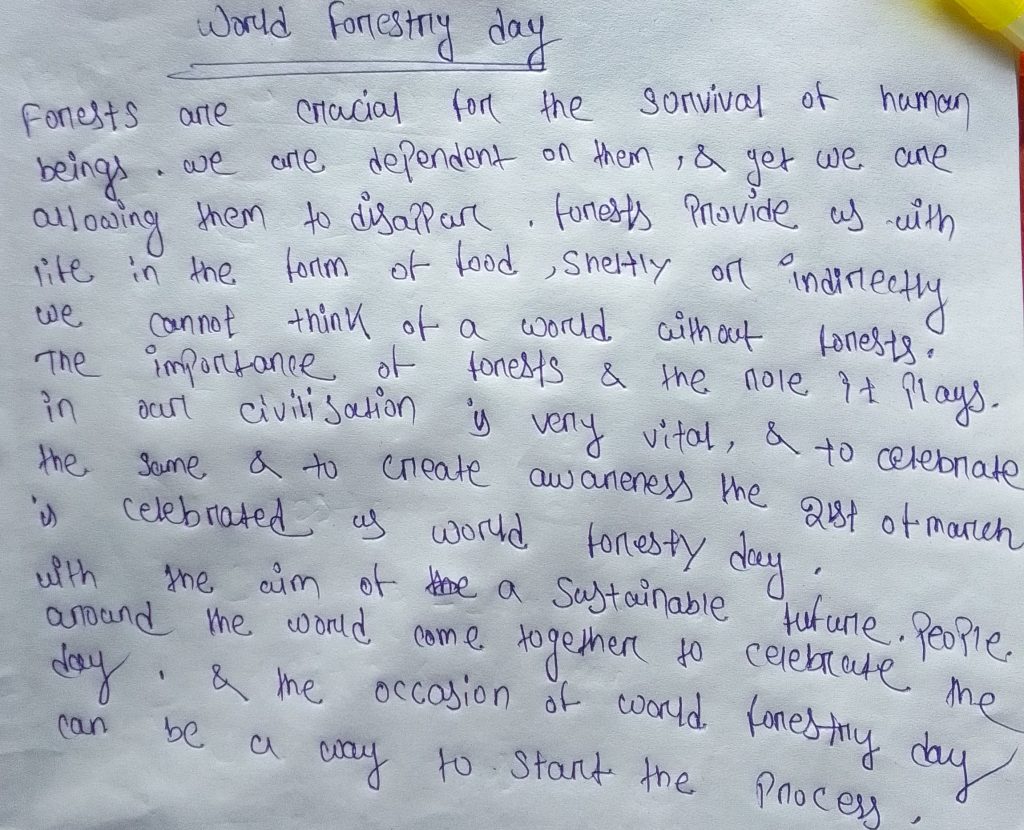 World Forestry day
Forests are crucial for the sorvival of human
beings. we are dependent on them, & yet we are
allowing them to disappar. forests Provide us with
life in the form of food, sheltly or indirectly
we cannot think of a world without forests.
The importance of forests & the role it Plays.
in our civilisation is very vital, & to celebrate
the same & to create awareness the 21st of march
is celebrated as world foresty day.
with the aim of the a Sustainable future. People
around the world come together to celebrate the
day. & the occasion of world forestry day
can be a way to start the Process.